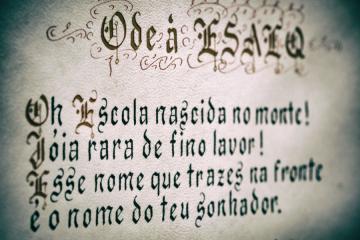 Ode à ESALQ
Oh Escola nascida no monte!
Jóia rara de fino lavor!
Esse nome que trazes na fronte
é o nome do teu sonhador.